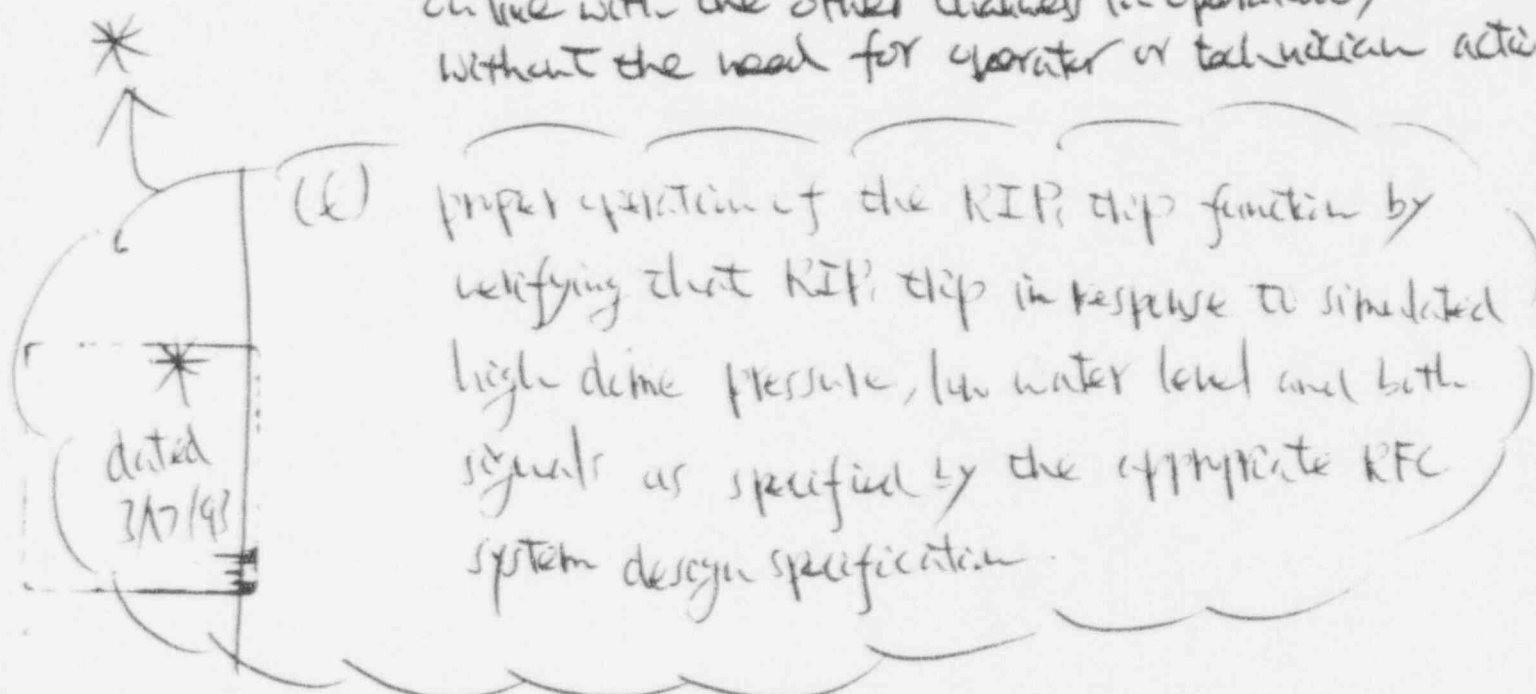 on line with the other channels (in operation)
without the need for operator or technician actio
(f) proper operation of the RIPs trip function by
verifying that RIPs trip in response to simulated
high dome pressure, low water level and both
signals as specified by the appropriate RFC
system design specification
dated
3/17/93